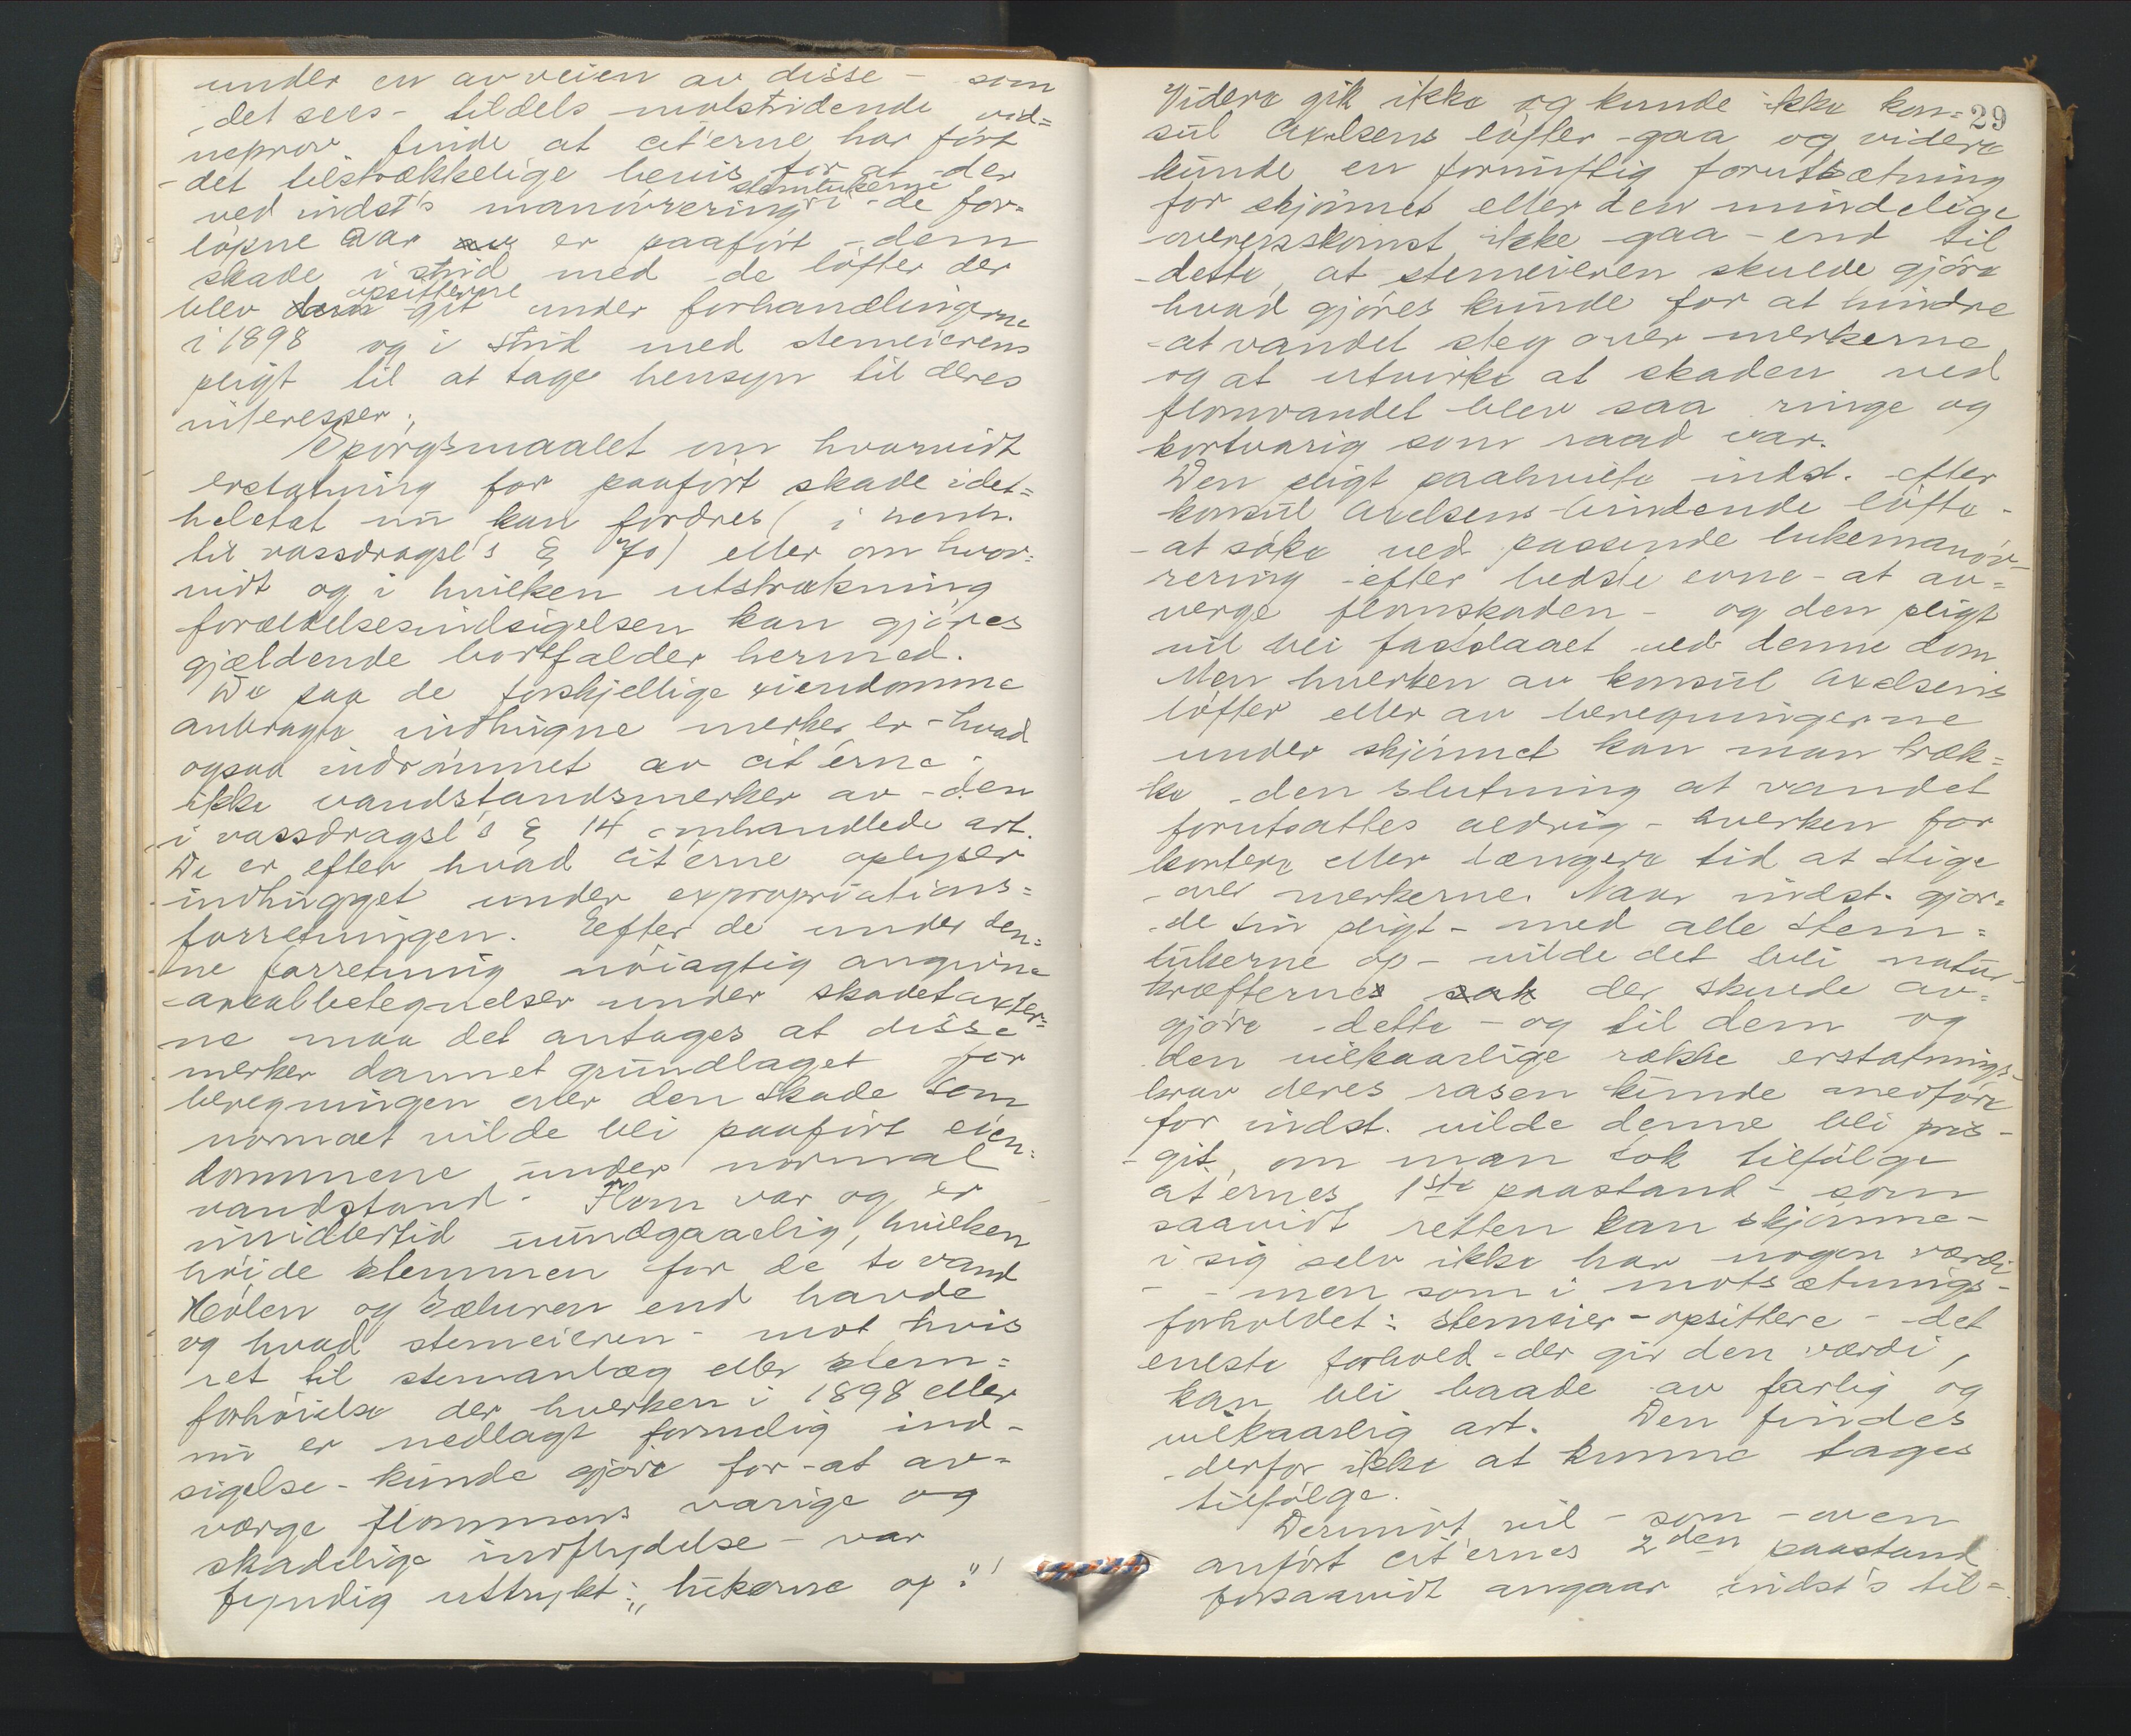 under en avveien av disse - som
det sees - tildels motstridende vid=
neprov finde at cit'erne har ført
det tilstrækkelige bevis for at der
ved indst's manøvrering stemlukerne i de for=
løpne aar av er paaført dem
skade i strid med de løfter der
blev dem opsitterne git under forhandlingerne
i 1898 og i strid med stemeierens
pligt til at tage hensyn til deres
interesser.
Spørgsmaalet om hvorvidt
erstatning for paaført skade idet=
heletat nu kan fordres (i henh.
til vassdragsl's § 70) eller om hvor=
vidt og i hvilken utstrækning
forældelsesindsigelsen kan gjøres
gjældende bortfalder hermed.
De paa de forskjellige eiendomme
anbragte indhugne merker er - hvad
ogsaa indrømmet av cit'erne -
ikke vandstandsmerker av den
i vassdragsl's § 14 omhandlede art.
De er efter hvad cit'erne oplyser
indhugget under expropriations=
forretningen. Efter de under den=
ne forretning nøiagtig angivne
arealbetegnelser under skadetaxter=
ne maa det antages at disse
merker dannet grundlaget for
beregningen over den skade som
normalt vilde bli paaført eien=
dommene under normal
vandstand. Flom var og er
imidlertid uundgaaelig, hvilken
høide stemmen for de to vand
Hølen og Sæluren end havde
og hvad stemeieren - mot hvis
ret til stemanlæg eller stem=
forhøielse der hverken i 1898 eller
nu er nedlagt formelig ind=
sigelse - kunde gjøre for at av=
værge flommens varige og
skadelige indflydelse - var
fyndig uttrykt: "lukerne op!"
29
Videre gik ikke og kunde ikke kon=
sul Axelsens løfter gaa og videre
kunde en fornuftig forutsætning
for skjønnet eller den mindelige
overenskomst ikke gaa end til
dette, at stemeieren skulde gjøre
hvad gjøres kunde for at hindre
at vandet steg over merkerne
og at utvirke at skaden ved
flomvandet blev saa ringe og
kortvarig som raad var.
Den pligt paahvilte indst. efter
konsul Axelsens bindende løfte -
at søke ved passende lukemanøv=
rering efter bedste evne at av=
verge flomskaden - og den pligt
vil bli fastslaaet ved denne dom
Men hverken av konsul Axelsens
løfter eller av beregningerne
under skjønnet kan man træk=
ke den slutning at vandet
forutsattes aldrig - hverken for
kortere eller længere tid at stige
over merkerne. Naar indst. gjor=
de sin pligt - med alle stem=
lukerne op - vilde det bli natur=
kræfternes sak der skulde av=
gjøre dette - og til dem og
den vilkaarlige række erstatnings=
krav deres rasen kunde medføre
for indst. vilde denne bli pris=
git, om man tok tilfølge
cit'ernes 1ste paastand - som
saavidt retten kan skjønne -
i sig selv ikke har nogen værdi
- men som i motsætnings=
forholdet: stemeier - opsittere - det
eneste forhold der gir den værdi,
kan bli baade av farlig og
vilkaarlig art. Den findes
derfor ikke at kunne tages
tilfølge.
Derimot vil - som oven
anført cit'ernes 2den paastand
forsaavidt angaar indst's til=